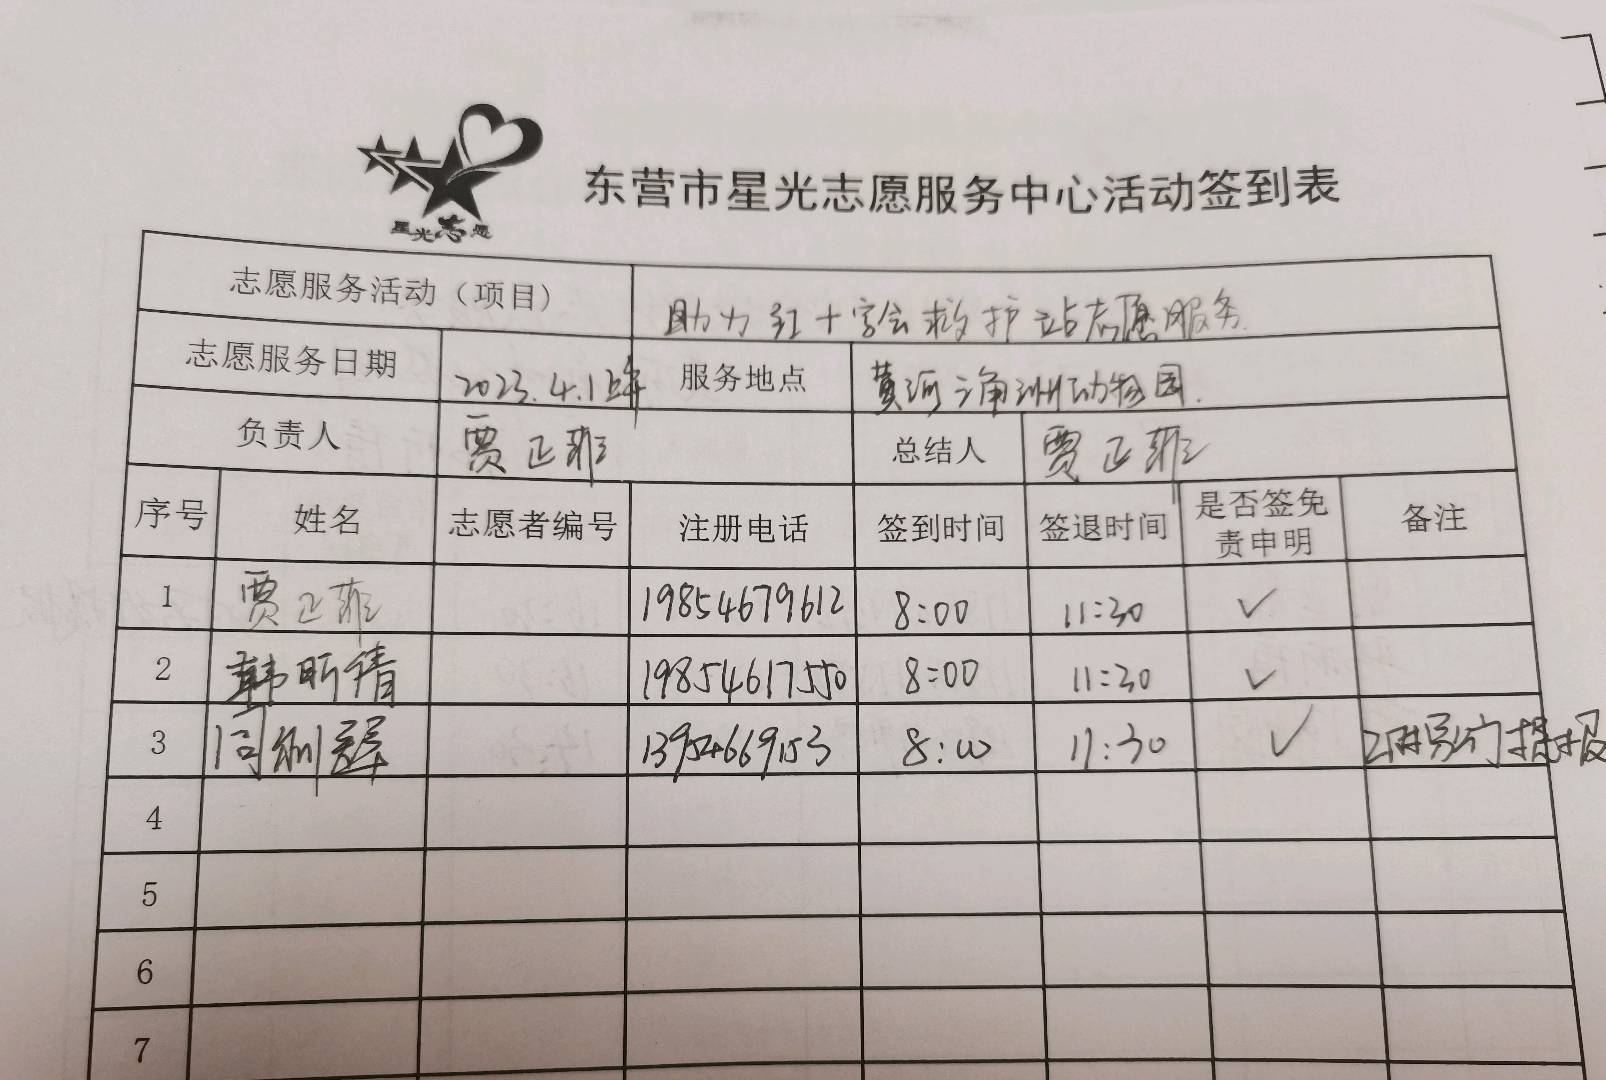 星光志愿
东营市星光志愿服务中心活动签到表
志愿服务活动（项目） 助力红十字会救护站志愿服务.
志愿服务日期 2023.4.1上午 服务地点 黄河三角洲动物园.
负责人 贾正菲 总结人 贾正菲
序号 姓名 志愿者编号 注册电话 签到时间 签退时间 是否签免责申明 备注
1 贾正菲 19854679612 8:00 11:30 ✓
2 韩昕倩 19854617550 8:00 11:30 ✓
3 13954669153 8:00 11:30 ✓
4
5
6
7